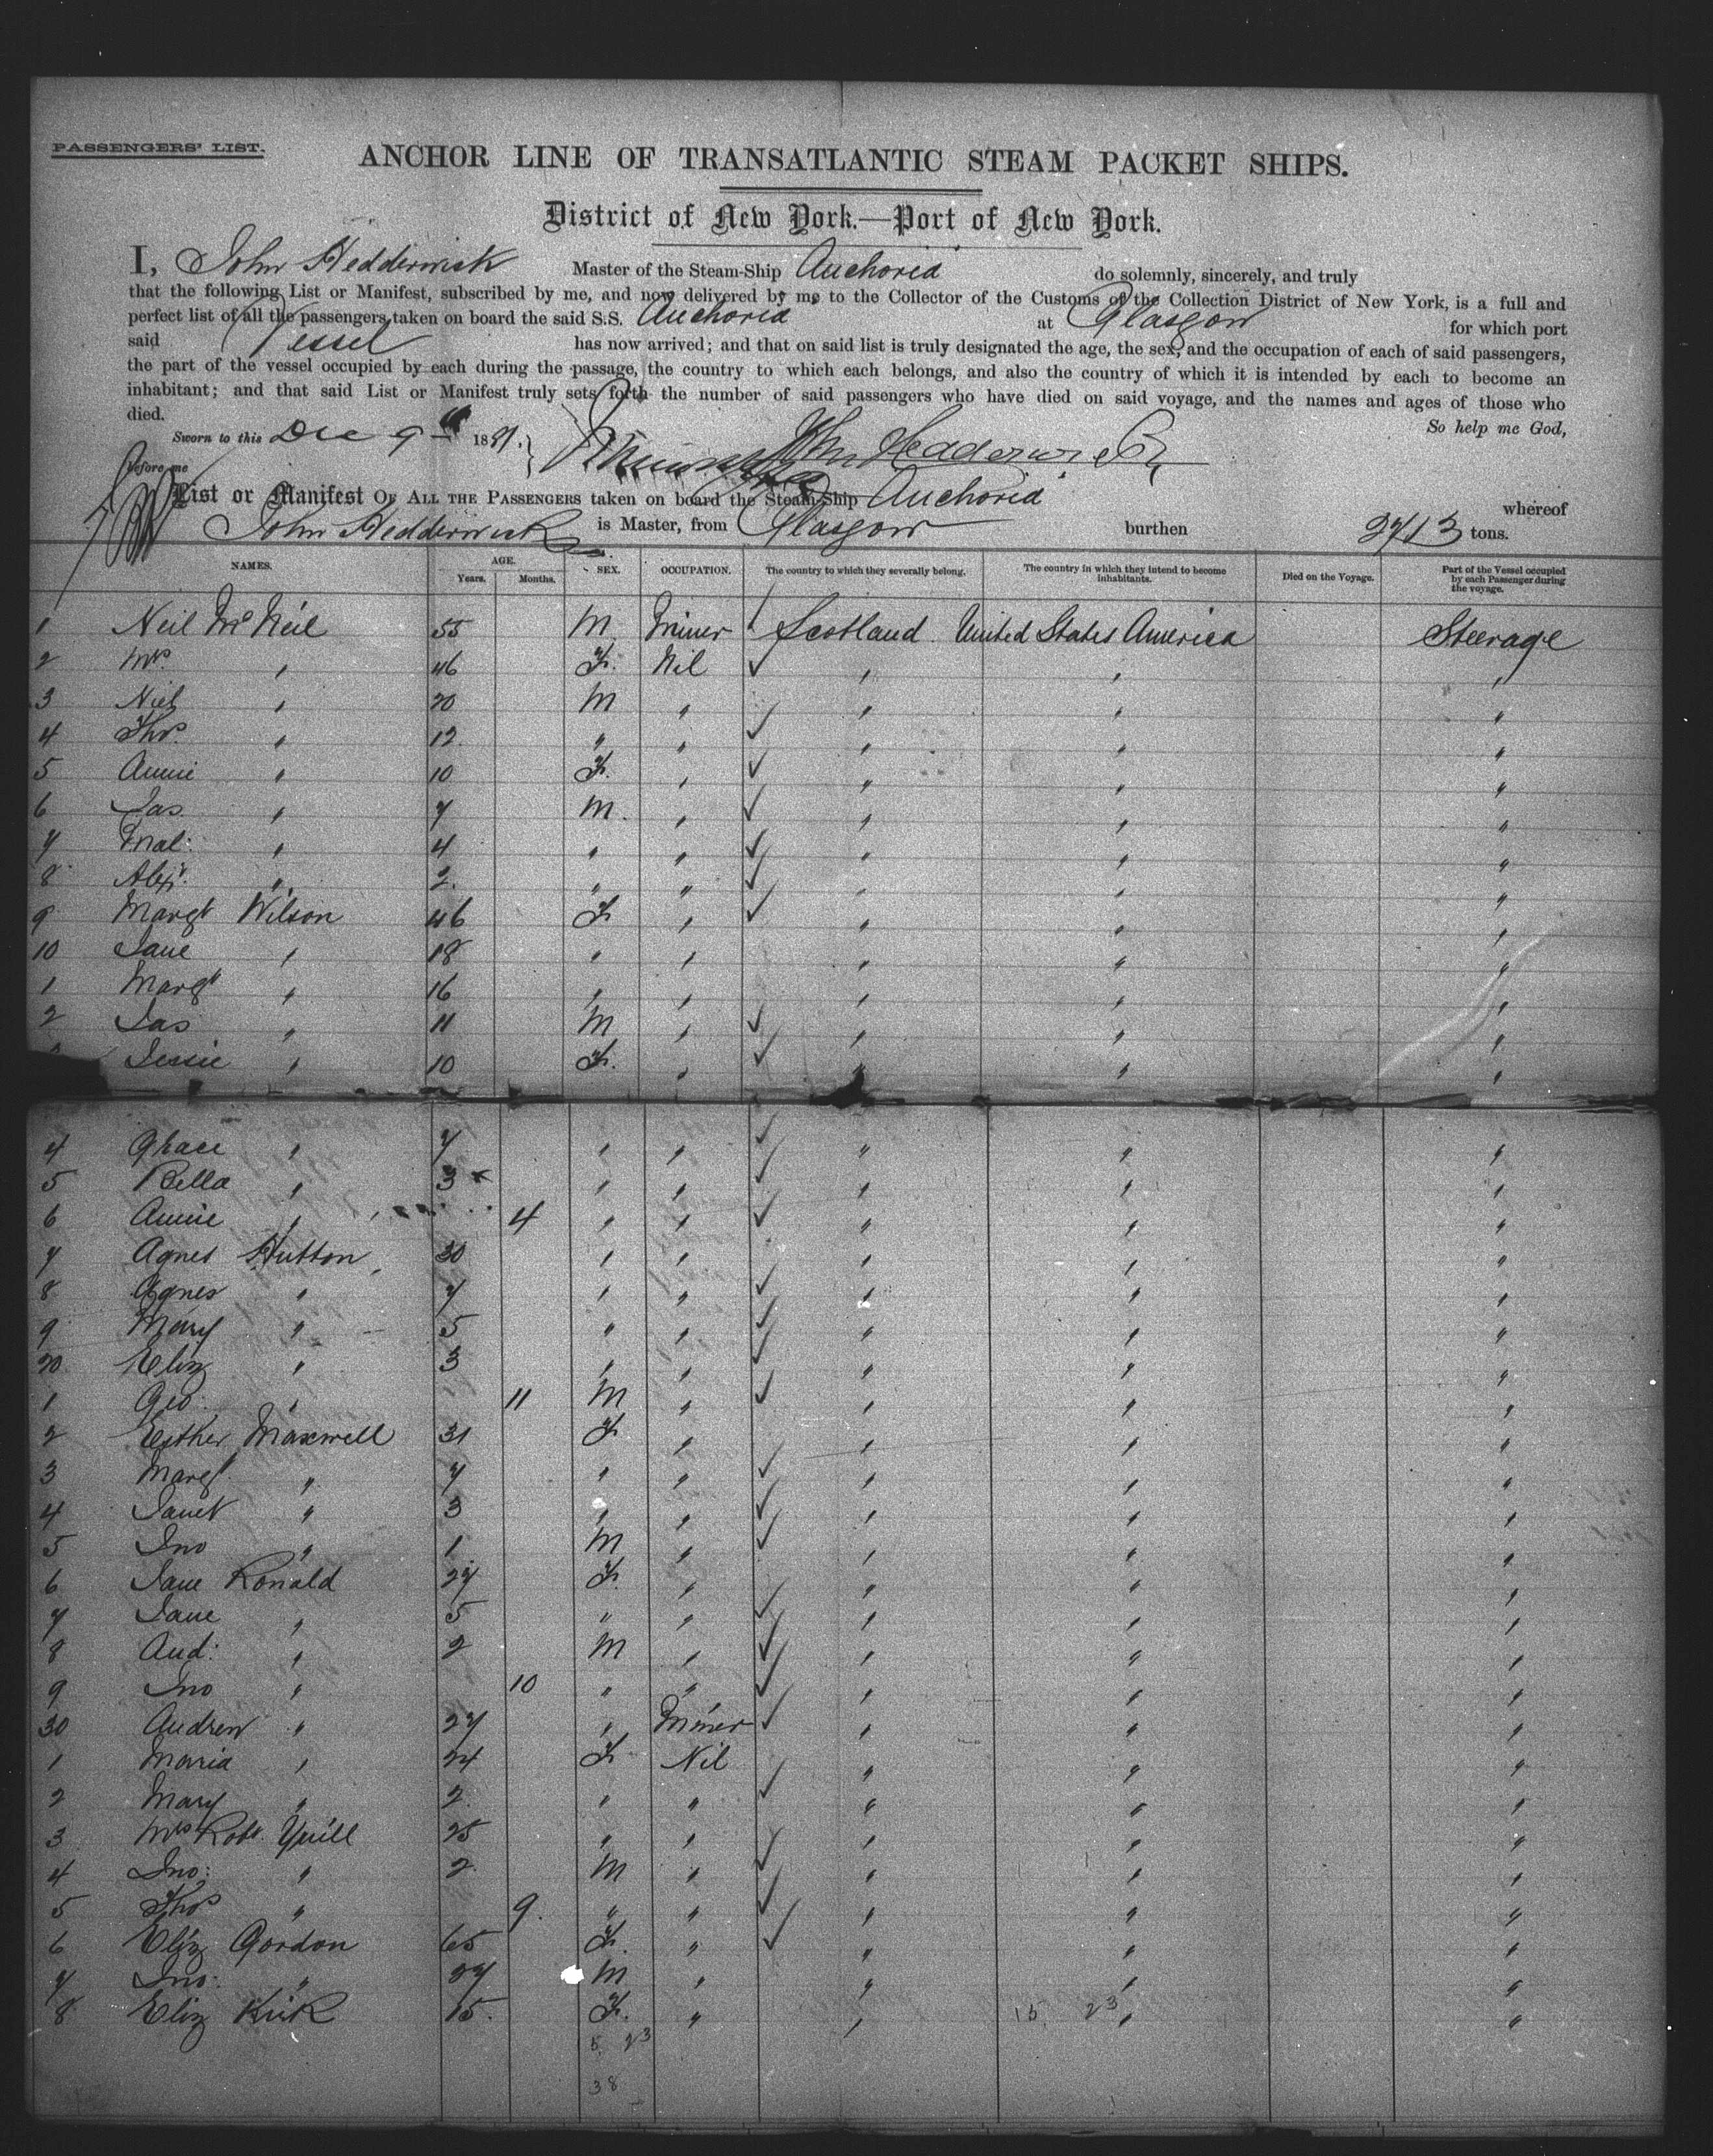 PASSENGERS' LIST.
ANCHOR LINE OF TRANSATLANTIC STEAM PACKET SHIPS.
District of New York.—Port of New York.
I, John Hedderwick Master of the Steam-Ship Anchoria do solemnly, sincerely, and truly
that the following List or Manifest, subscribed by me, and now delivered by me to the Collector of the Customs of the Collection District of New York, is a full and
perfect list of all the passengers taken on board the said S.S. Anchoria at Glasgow for which port
said Vessel has now arrived; and that on said list is truly designated the age, the sex, and the occupation of each of said passengers,
the part of the vessel occupied by each during the passage, the country to which each belongs, and also the country of which it is intended by each to become an
inhabitant; and that said List or Manifest truly sets forth the number of said passengers who have died on said voyage, and the names and ages of those who
died. So help me God,
Sworn to this Dec 9th 1881. John Hedderwick
before me
List or Manifest OF ALL THE PASSENGERS taken on board the Steam-Ship Anchoria whereof
John Hedderwick is Master, from Glasgow burthen 2713 tons.
NAMES. AGE. Years. Months. SEX. OCCUPATION. The country to which they severally belong. The country in which they intend to become inhabitants. Died on the Voyage. Part of the Vessel occupied by each Passenger during the voyage.
1 Neil McNeil 55 M. Miner Scotland United States America Steerage
2 Mrs " 46 F. Nil " " "
3 Neil " 20 M " " " "
4 Thos. " 12. " " " " "
5 Annie " 10 F. " " " "
6 Jas. " 7 M. " " " "
7 Mal: " 4 " " " " "
8 Alexr. " 2. " " " " "
9 Margt Wilson 46 F " " " "
10 Jane " 18 " " " " "
1 Margt " 16 " " " " "
2 Jas " 11 M " " " "
Jessie " 10 F. " " " "
4 Grace " 7 " " " " "
5 Bella " 3 " " " " "
6 Annie " 4 " " " " "
7 Agnes Hutton 30 " " " " "
8 Agnes " 7 " " " " "
9 Mary " 5 " " " " "
20 Eliz " 3 " " " " "
1 Geo: " 11 M " " " "
2 Esther Maxwell 31 F " " " "
3 Margt " 7 " " " " "
4 Janet " 3 " " " " "
5 Jno " 1 M " " " "
6 Jane Ronald 27 F. " " " "
7 Jane " 5 " " " " "
8 And: " 2 M " " " "
9 Jno " 10 " " " " "
30 Andrew " 27 " Miner " " "
1 Maria " 24 F Nil " " "
2 Mary " 2. " " " " "
3 Mrs Robt. Yuill 25 " " " " "
4 Jno: " 2. M " " " "
5 Thos " 9. " " " " "
6 Eliz Gordon 65 F. " " " "
7 Jno: " 27 M " " " "
8 Eliz Kirk 15. F. " " 15. 23 " "
5 23
38